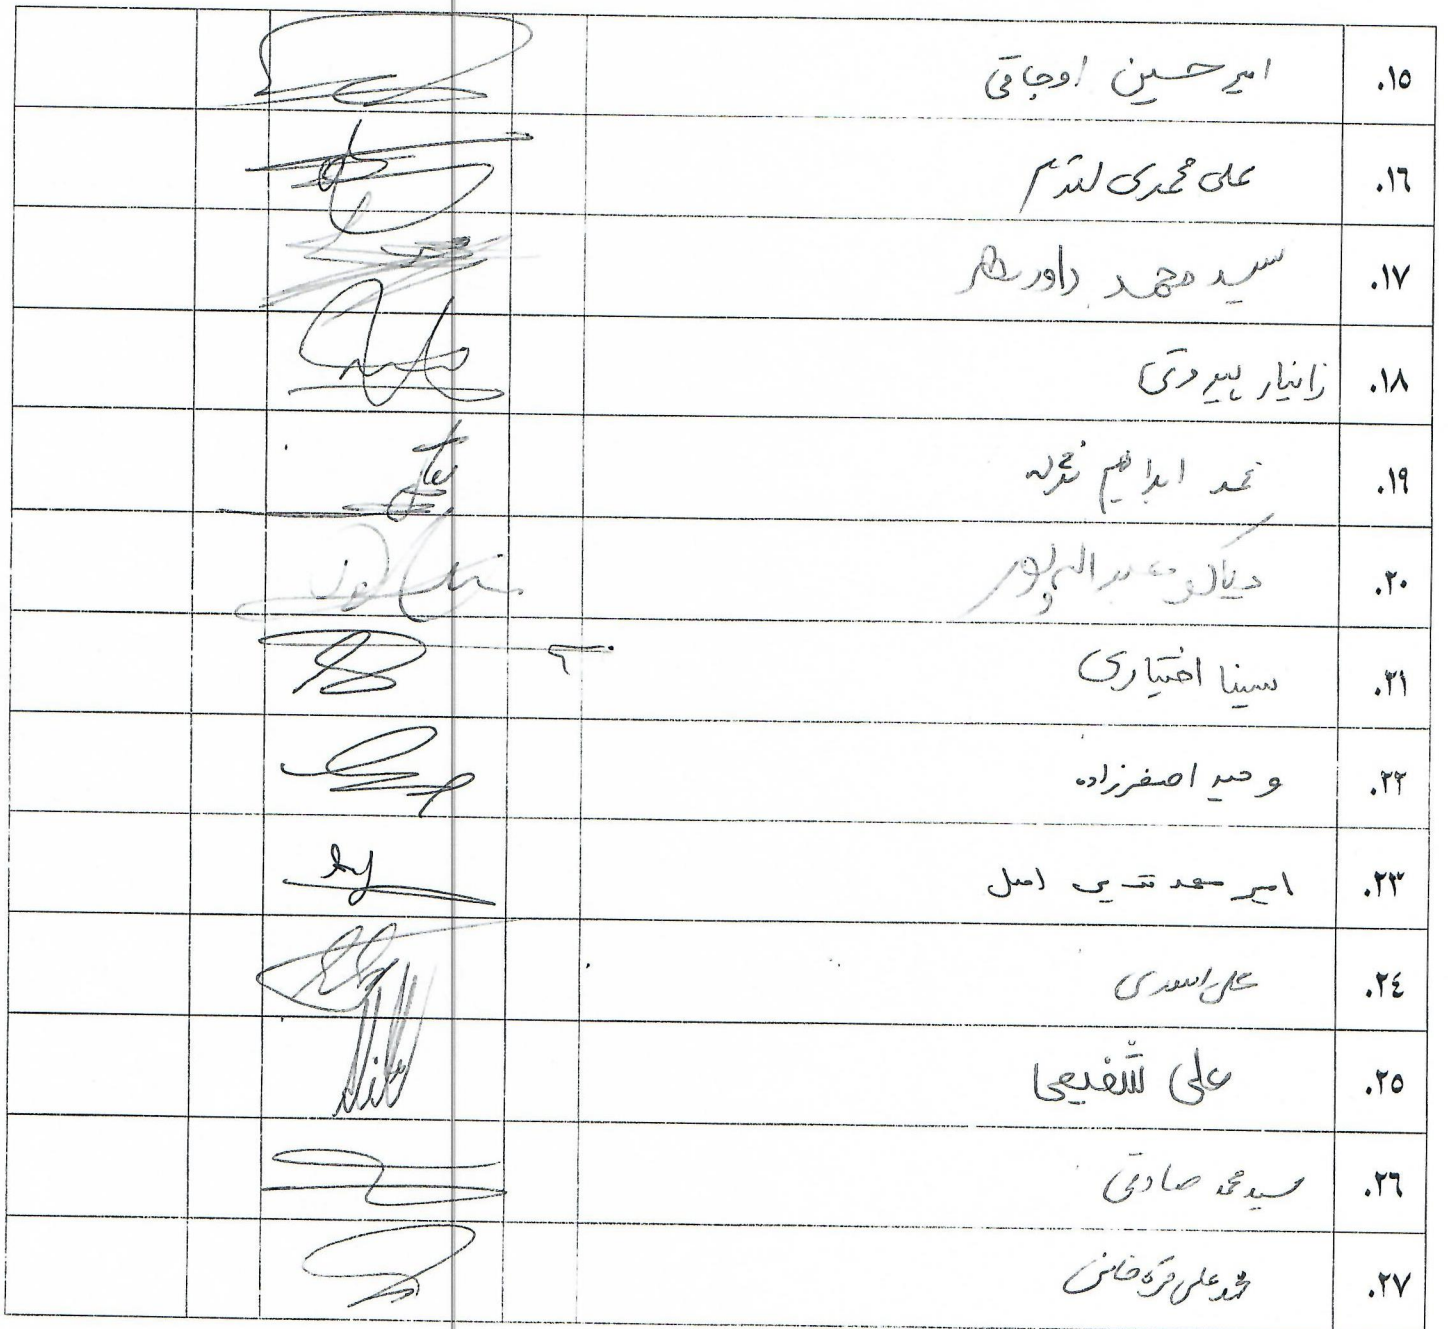 .۱۵ امیرحسین اوجاقی
.۱۶ علی محمدی
.۱۷ سید محمد داور
.۱۸ زانیار پیروتی
.۱۹ محمد ابراهیم
.۲۰ دیاکو عبداله پور
.۲۱ سینا اختیاری
.۲۲ وحید اصغرزاده
.۲۳ امیر محمد اصل
.۲٤ علی اسدی
.۲۵ علی شفیعی
.۲٦ سید محمد صادقی
.۲۷ محمد علی قره خانی